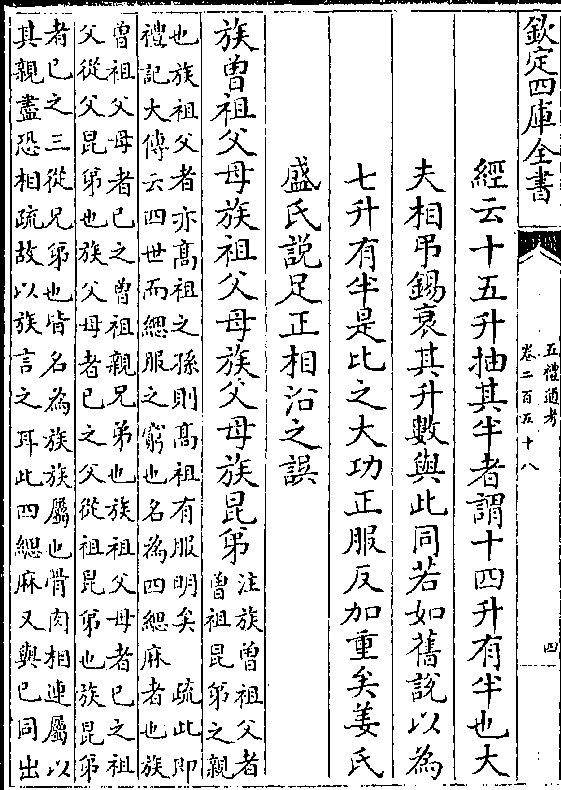 欽定四庫全書
五禮通考
卷二百五十八
四
經云十五升抽其半者謂十四升有半也大
夫相弔錫衰其升數與此同若如舊説以為
七升有半是比之大功正服反加重矣姜氏
盛氏説足正相沿之誤
族曾祖父母族祖父母族父母族昆弟
注族曾祖父者
曾祖昆弟之親
也族祖父者亦髙祖之孫則髙祖有服明矣　疏此即
禮記大傳云四世而緦服之窮也名為四緦麻者也族
曾祖父母者已之曾祖親兄弟也族祖父母者已之祖
父從父昆弟也族父母者已之父從祖昆弟也族昆弟
者已之三從兄弟也皆名為族族屬也骨肉相連屬以
其親盡恐相疏故以族言之耳此四緦麻又與已同出